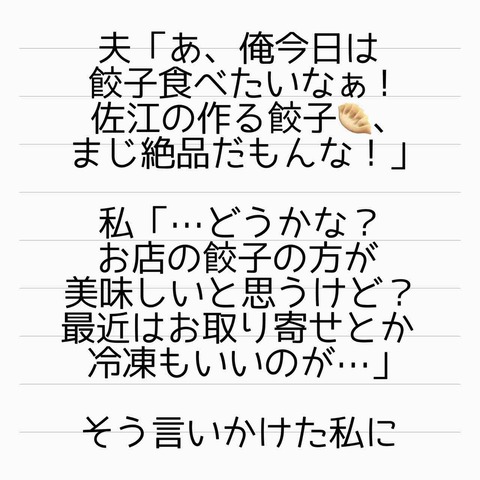 夫「あ、俺今日は
餃子食べたいなぁ！
佐江の作る餃子🥟、
まじ絶品だもんな！」
私「…どうかな？
お店の餃子の方が
美味しいと思うけど？
最近はお取り寄せとか
冷凍もいいのが…」
そう言いかけた私に